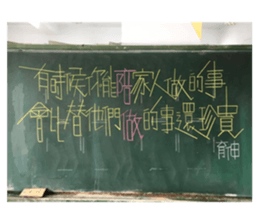 有時候你能陪家人做的事
會比替他們做的事還珍貴
育伸